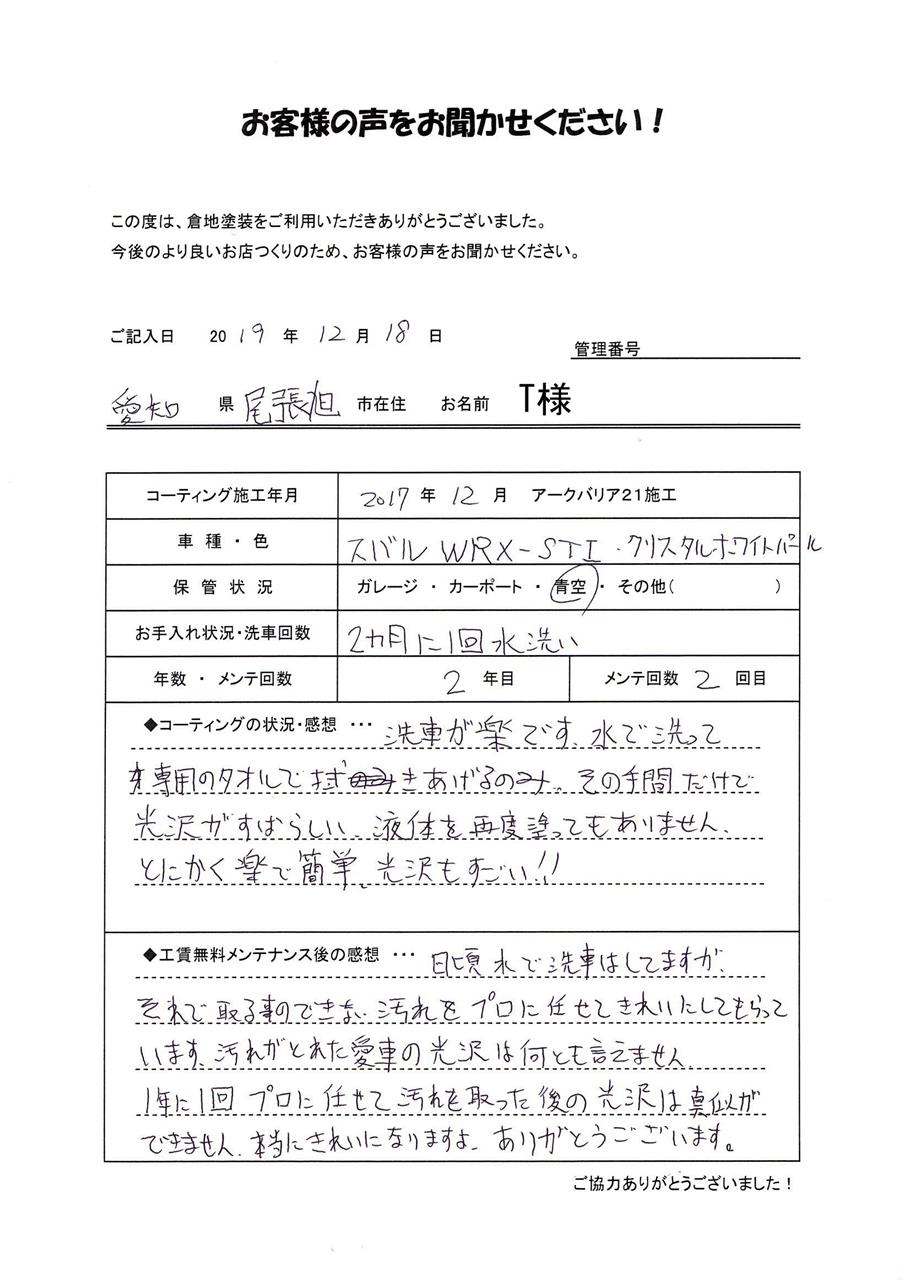 お客様の声をお聞かせください！
この度は、倉地塗装をご利用いただきありがとうございました。
今後のより良いお店つくりのため、お客様の声をお聞かせください。
ご記入日 2019 年 12 月 18 日
管理番号
愛知 県 尾張旭 市在住 お名前 T様
コーティング施工年月 2017 年 12 月 アークバリア21施工
車 種 ・ 色 スバル WRX-STI・クリスタルホワイトパール
保 管 状 況 ガレージ ・ カーポート ・ 青空 ・ その他( )
お手入れ状況・洗車回数 2カ月に1回水洗い
年数 ・ メンテ回数 2 年目 メンテ回数 2 回目
◆コーティングの状況・感想 ・・・ 洗車が楽です、水で洗って
専用のタオルで拭きあげるのみ。その手間だけで
光沢がすばらしい、液体を再度塗ってもありません、
とにかく楽で簡単、光沢もすごい!!
◆工賃無料メンテナンス後の感想 ・・・ 日頃水で洗車はしてますが、
それで取る事のできない汚れをプロに任せてきれいにしてもらって
います、汚れがとれた愛車の光沢は何とも言えません、
1年に1回プロに任せて汚れを取った後の光沢は真似が
できません、本当にきれいになりますよ、ありがとうございます。
ご協力ありがとうございました！